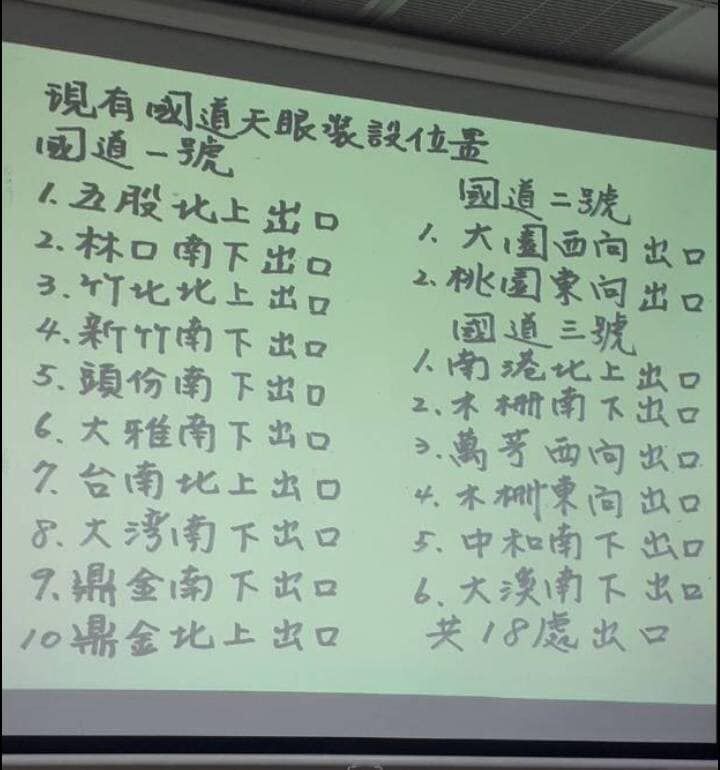 現有國道天眼裝設位置
國道一號
1.五股北上出口
2.林口南下出口
3.竹北北上出口
4.新竹南下出口
5.頭份南下出口
6.大雅南下出口
7.台南北上出口
8.大灣南下出口
9.鼎金南下出口
10鼎金北上出口
國道二號
1.大園西向出口
2.桃園東向出口
國道三號
1.南港北上出口
2.木柵南下出口
3.萬芳西向出口
4.木柵東向出口
5.中和南下出口
6.大溪南下出口
共18處出口